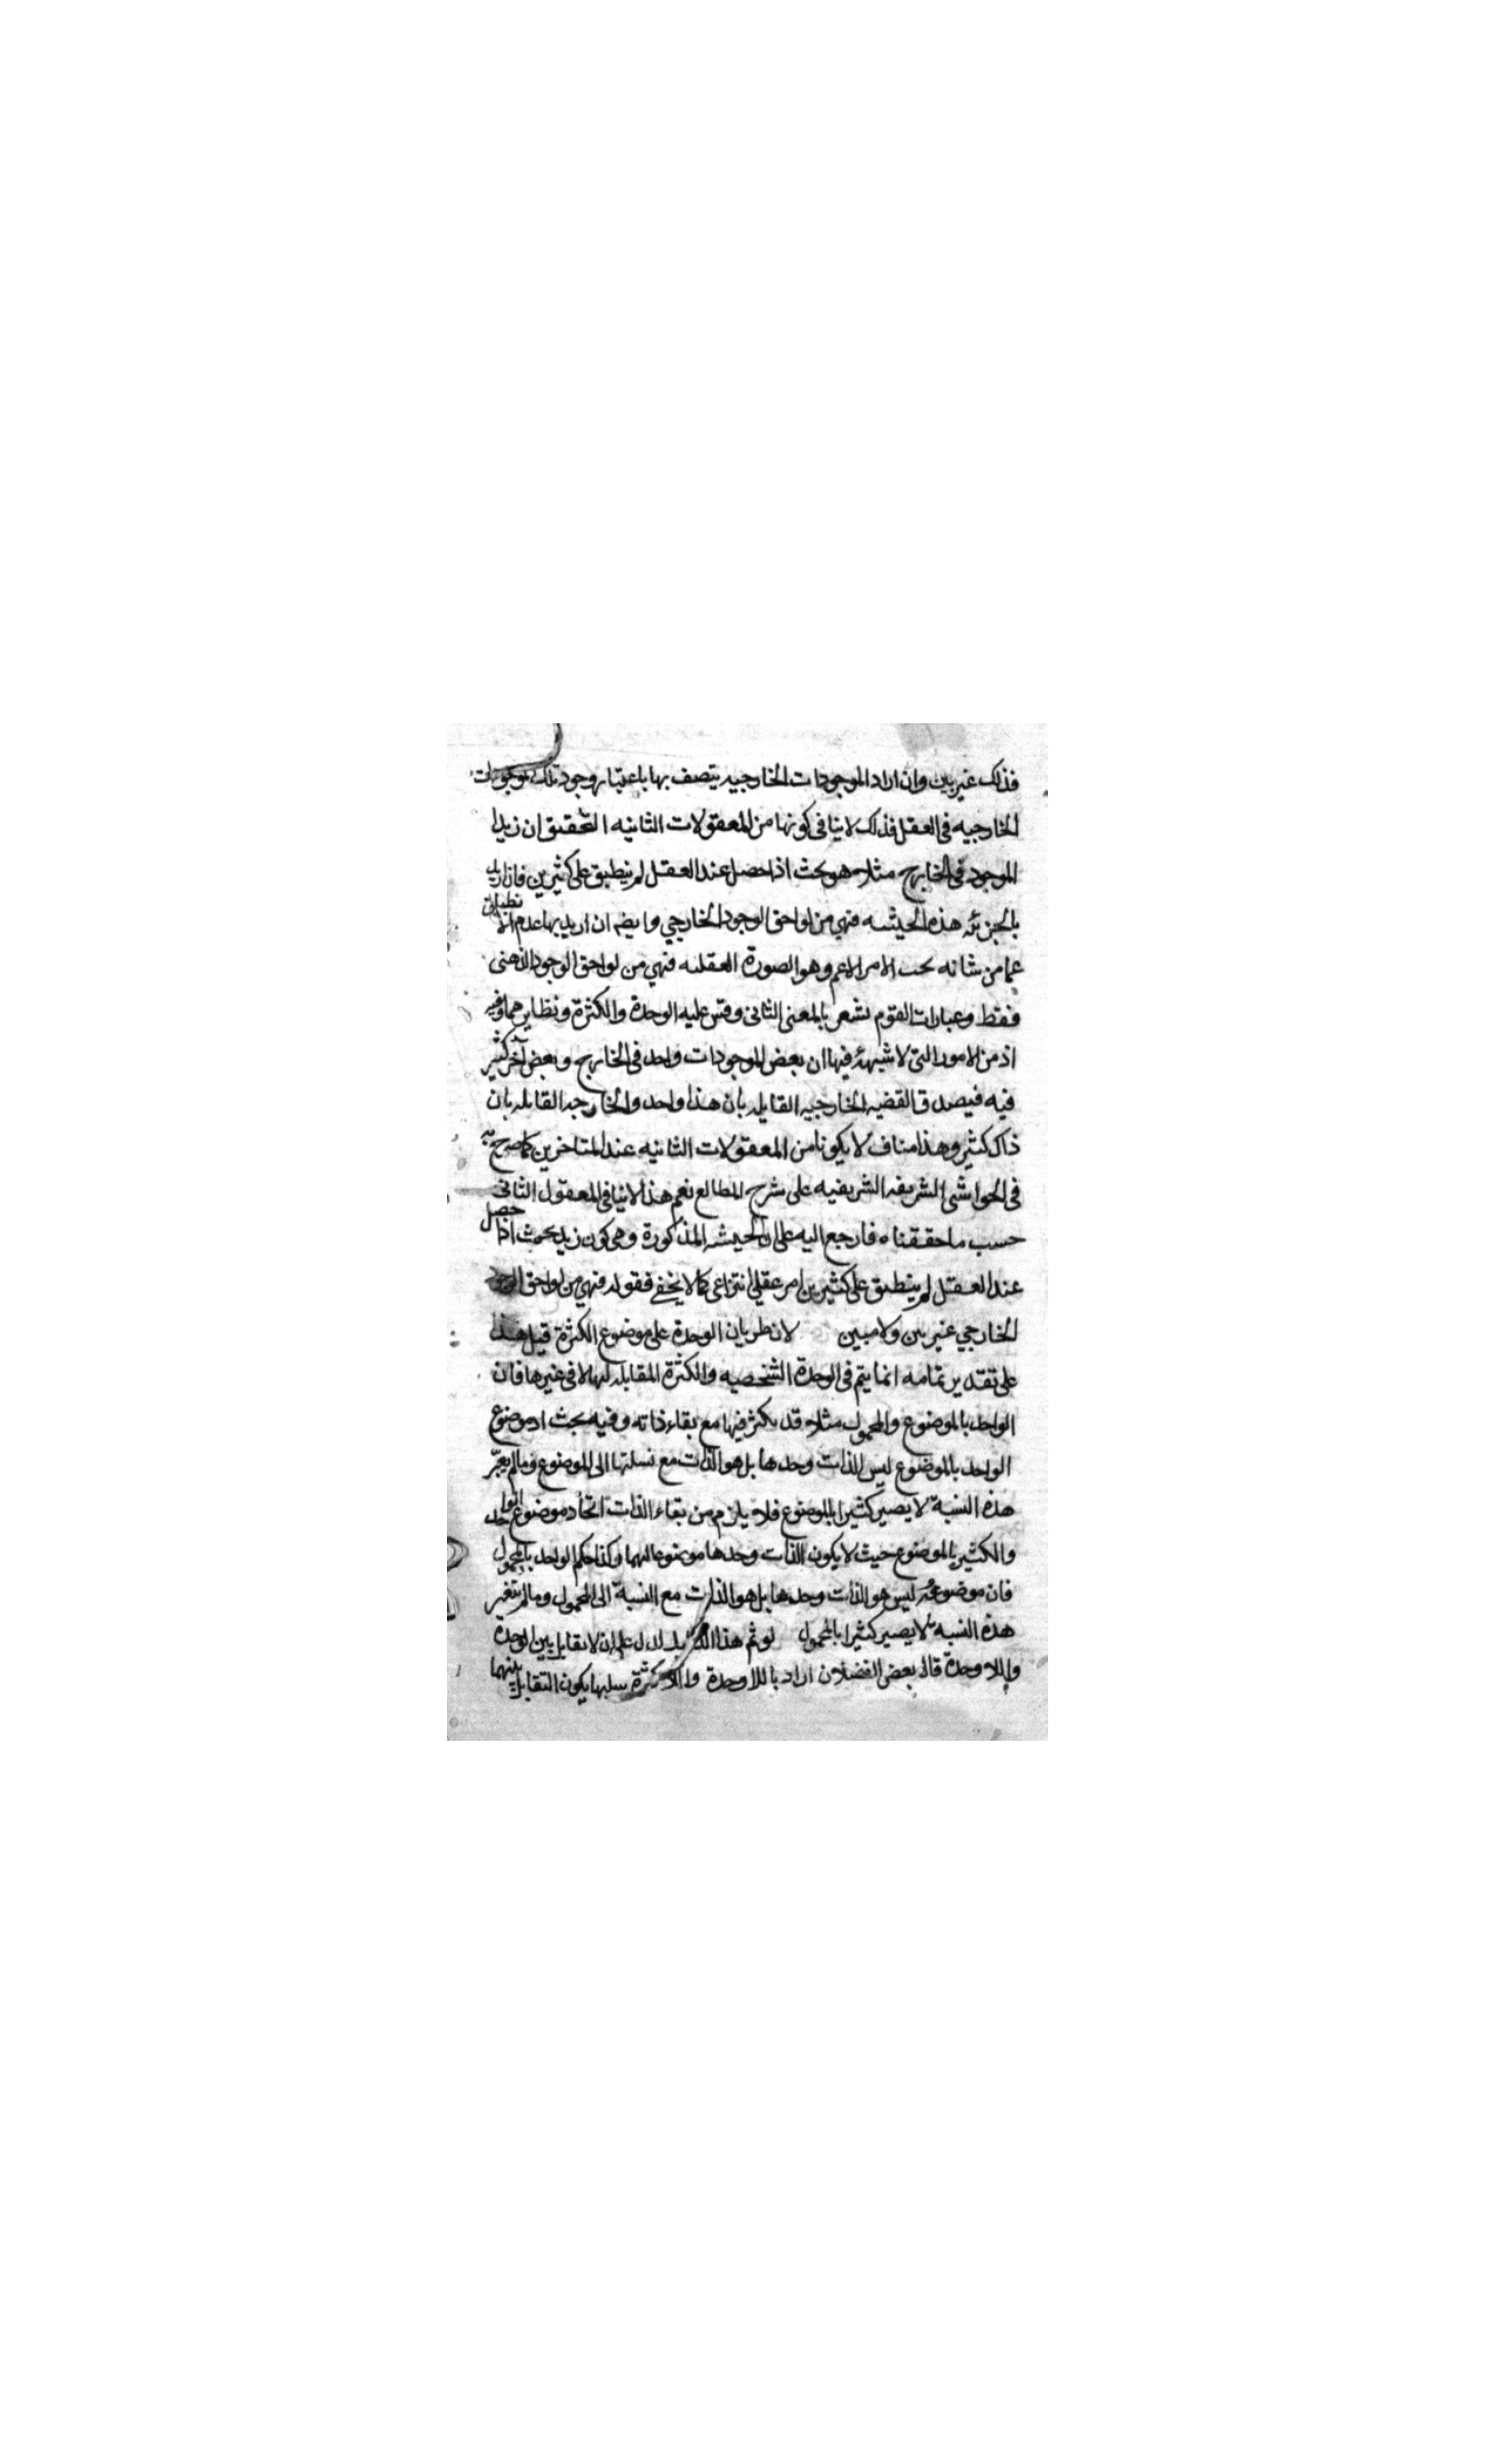 فذلك غير بين وان اراد الموجودات الخارجيه يتصف بها باعتبار وجود تلك الموجودات
الخارجيه في العقل فذلك لاينافى كونها من المعقولات الثانيه التحقيق ان زيدا
الموجود في الخارج مثلا هو بحيث اذا حصل عند العقل لم ينطبق على كثيرين فان اريد
بالجزئيه هذه الحيثيه فهي من لواحق الوجود الخارجي وايضا ان اريد بها عدم الانطباق
عما من شانه بحسب الامر الاعم وهو الصورة العقليه فهي من لواحق الوجود الذهنى
فقط وعبارات القوم تشعر بالمعنى الثانى وقس عليه الوحدة والكثرة ونظايرهما وفيه
اذ من الامور التى لا شبهة فيها ان بعض الموجودات واحد فى الخارج وبعض آخر كثير
فيه فيصدق القضيه الخارجيه القايله بان هذا واحد والخارجيه القايله بان
ذاك كثير وهذا مناف لا يكونا من المعقولات الثانيه عند المتاخرين كما صرح به
فى الحواشى الشريفه الشريفيه على شرح المطالع نعم هذا لاينافى المعقول الثانى
حسب ما حققناه فارجع اليه على ان الحيثيه المذكورة وهى كون زيد بحيث اذا حصل
عند العقل لم ينطبق على كثيرين امر عقلى انتزاعى كما لا يخفى فقوله فهي من لواحق الوجود
الخارجي غير بين ولا مبين لان طريان الوحدة على موضوع الكثرة قيل هذا
على تقدير تمامه انما يتم فى الوحدة الشخصيه والكثرة المقابله لها لا فى غيرها فان
الواحد بالموضوع والمحمول مثلا قد يكثر فيها مع بقاء ذاته وفيه بحث اذ موضوع
الواحد بالموضوع ليس الذات وحدها بل هو الذات مع نسبتها الى الموضوع ومالم يتغير
هذه النسبة لا يصير كثيرا بالموضوع فلا يلزم من بقاء الذات اتحاد موضوع الواحد
والكثير بالموضوع حيث لا يكون الذات وحدها موضوعا لهما وكذا حكم الواحد بالمحمول
فان موضوعه ليس هو الذات وحدها بل هو الذات مع النسبة الى المحمول ومالم يتغير
هذه النسبه لا يصير كثيرا بالمحمول لو تم هذا الدليل لدل على ان لا تقابل بين الوحدة
واللاوحدة قال بعض الفضلا ان اراد باللاوحدة واللاكثرة سلبها يكون التقابل بينهما